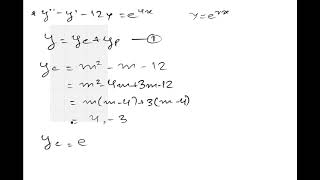 * y'' - y' - 12y = e^{4x}    y = e^{mx}
y = y_c + y_p — ①
y_c = m² - m - 12
= m² - 4m + 3m - 12
= m(m-4) + 3(m-4)
= 4, -3
y_c = e